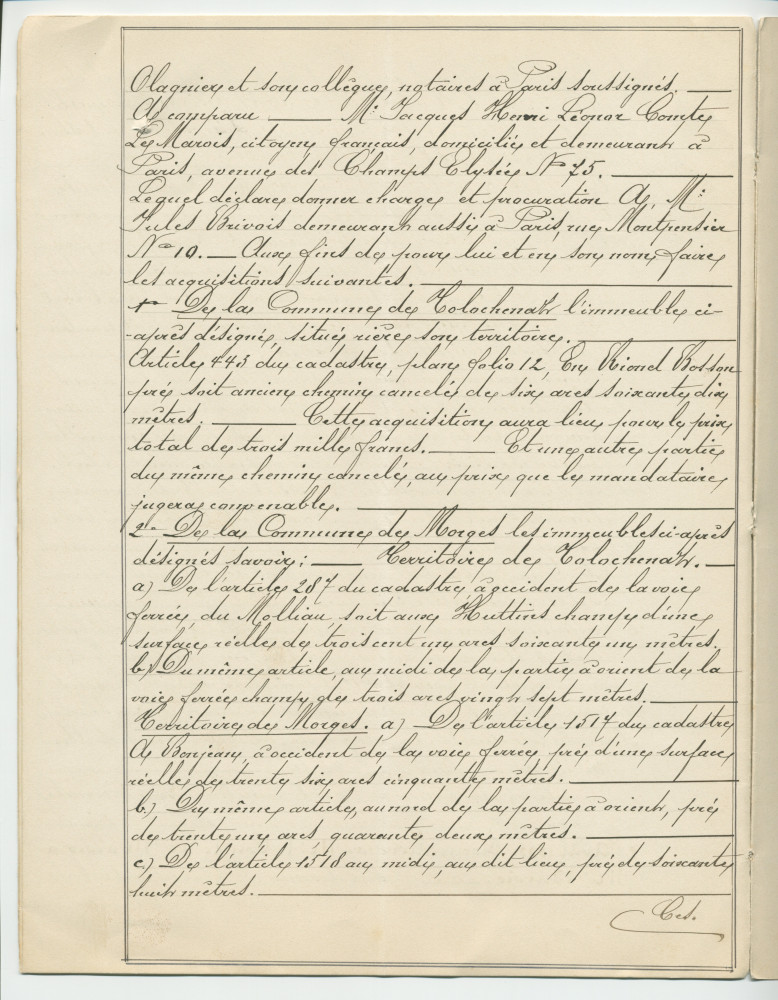 Olagnier et son collègue, notaires à Paris soussignés.
A comparu M: Jacques Henri Léonor Comte
Le Marois, citoyen français, domicilié et demeurant à
Paris, avenue des Champs Elysée Nº 75.
Lequel déclare donner charge et procuration A, M:
Jules Brivois demeurant aussi à Paris, rue Montpensier
Nº 10. Aux fins de pour lui et en son nom faire
les acquisitions suivantes.
1º De la Commune de Tolochenaz l'immeuble ci-
-après désigné, situé rière son territoire.
Article 443 du cadastre, plan folio 12, En Riond Bosson
pré soit ancien chemin cancelé de six ares soixante dix
mètres. Cette acquisition aura lieu pour le prix
total de trois mille francs. Et une autre partie
du même chemin cancelé, au prix que le mandataire
jugera convenable.
2º De la Commune de Morges les immeubles ci-après
désignés savoir: Territoire de Tolochenaz.
a) De l'article 287 du cadastre à occident de la voie
ferrée, du Molliau, soit aux Huttins champ d'une
surface réelle de trois cent un ares soixante un mètres.
b) Du même article, au midi de la partie à orient de la
voie ferrée champ de trois ares vingt sept mètres.
Territoire de Morges. a) De l'article 1517 du cadastre
A Bonjean, à occident de la voie ferrée, pré d'une surface
réelle de trente six ares cinquante mètres.
b.) Du même article, au nord de la partie à orient, pré
de trente un ares, quarante deux mètres.
c) De l'article 1518 au midi, au dit lieu, pré de soixante
huit mètres.
Cet.